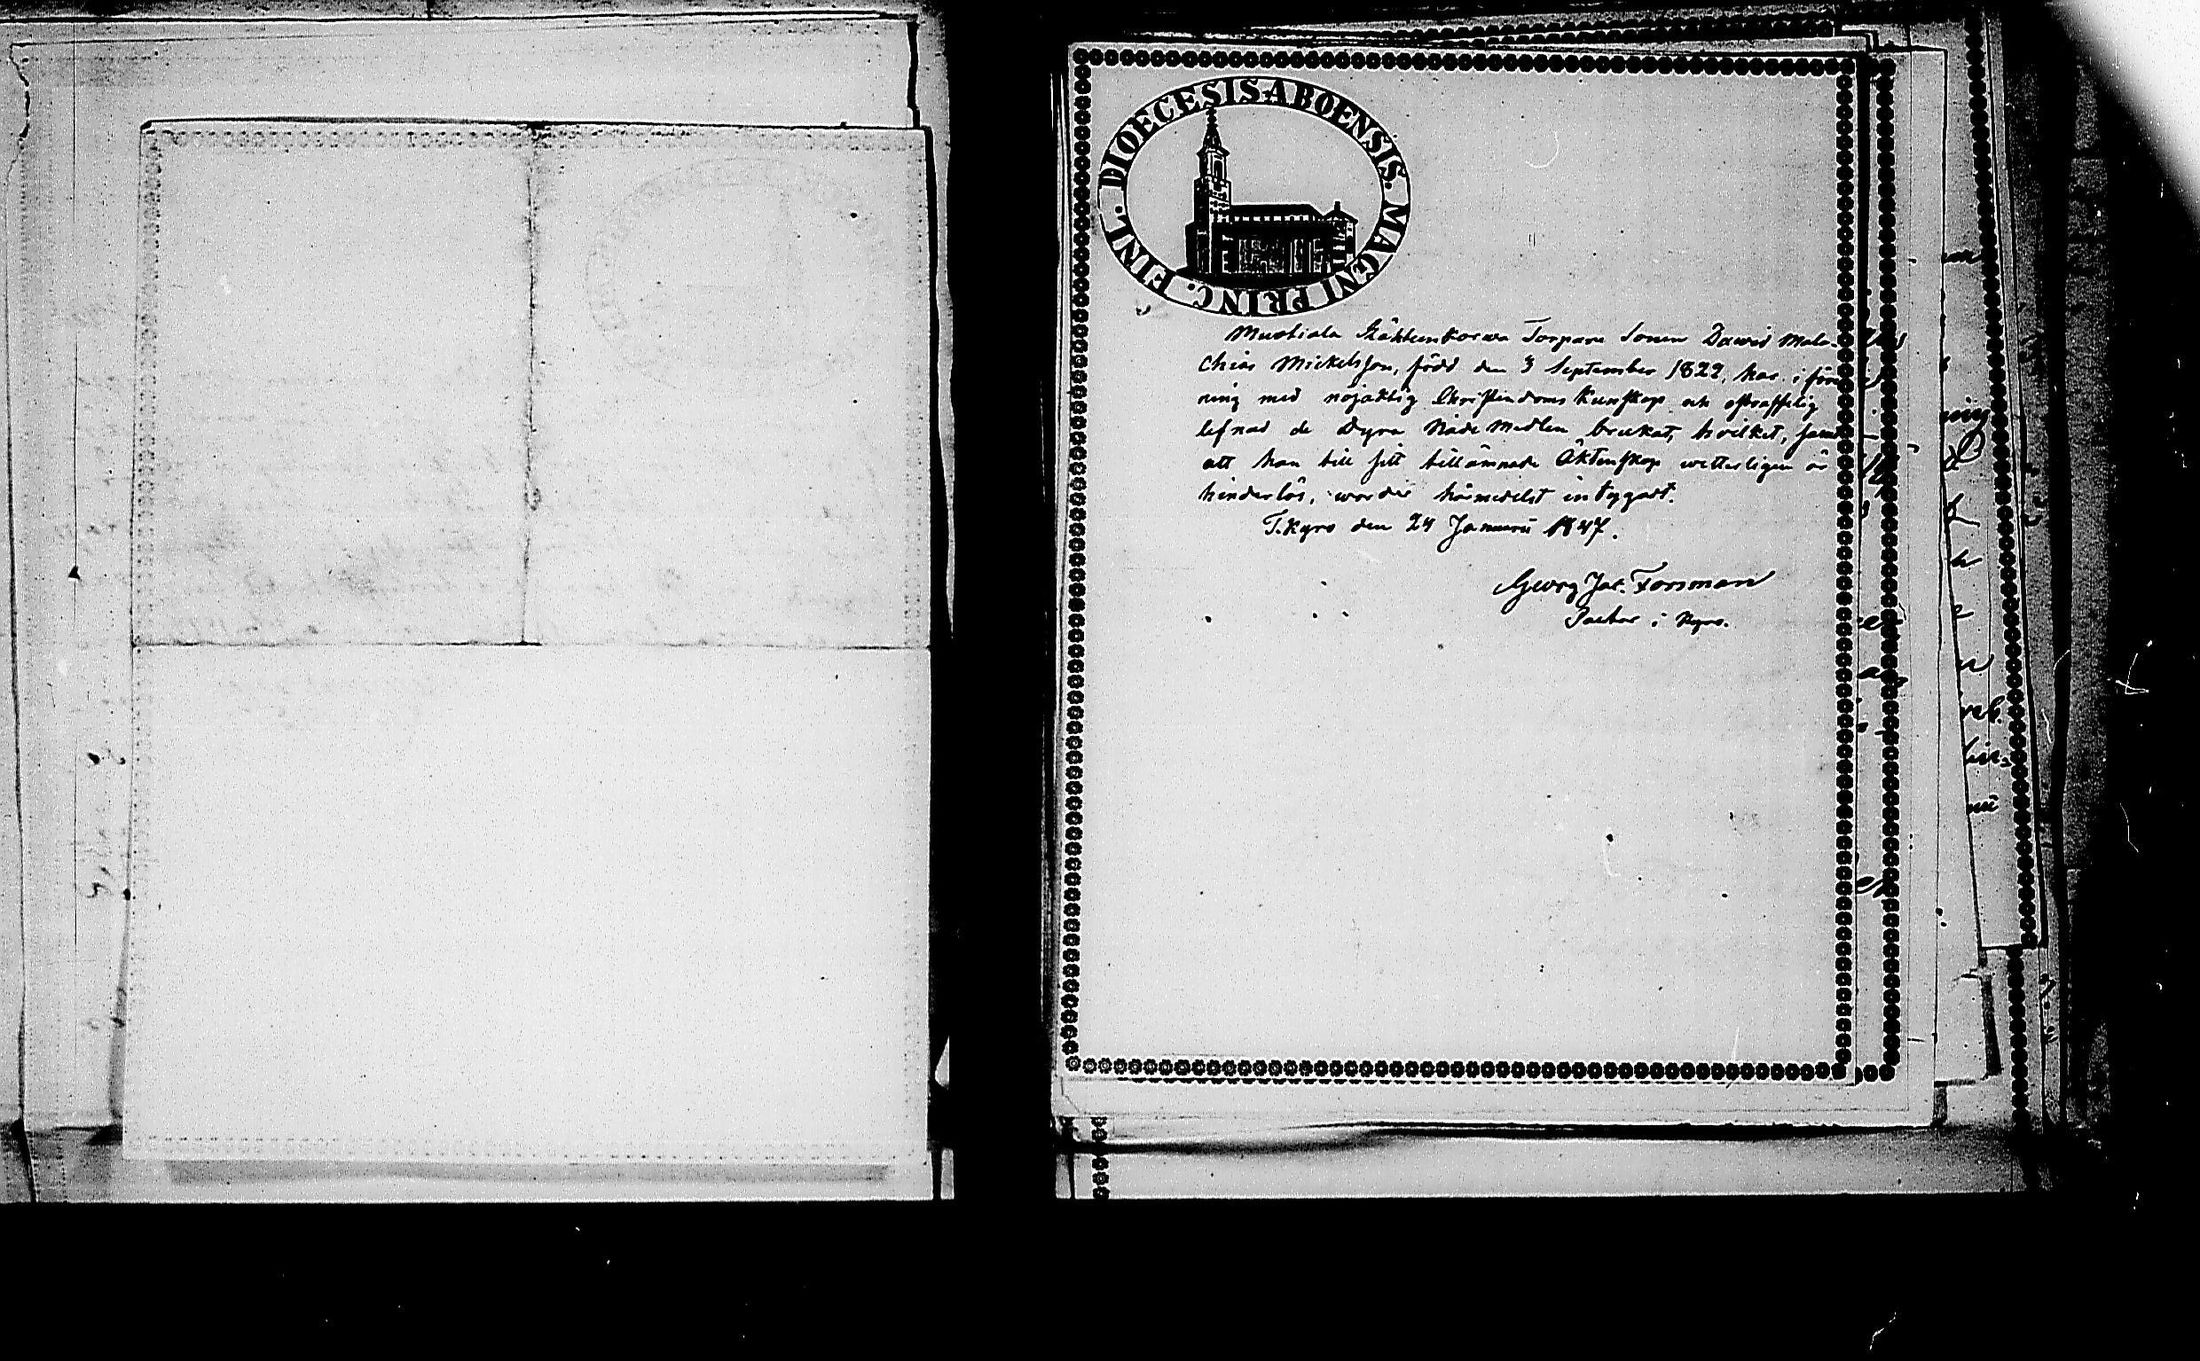 DIOECESIS ABOENSIS. MAGNI PRINC. FINL.
Mustiala Torpare Sonen Dawid Mala-
chias Mickelsson, född den 3 September 1822, har i före
ning med nöjaktig Christendoms Kunskap och ostrafflig
lefnad de Dyra Nåde Medlen brukat, hvilket, samt
att han till sitt tillämnade Äktenskap wetterligen är
hinderlös, warder härmedelst intygadt.
T.Kyro den 24 Januarii 1847.
Georg Jac. Forsman
Pastor i Kyro.